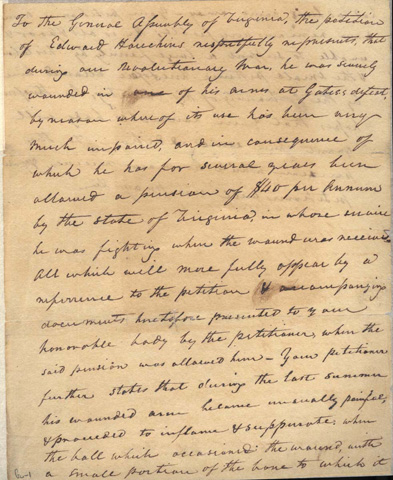 To the General Assembly of Virginia, the petition
of Edward Houchins respectfully represents, that
during our Revolutionary War, he was severely
wounded in one of his arms at Gates's defeat,
by reason where of its use has been very
much impaired, and in consequence of
which he has for several years been
allowed a pension of $40 per Annum
by the state of Virginia, in whose service
he was fighting when the wound was received
All which will more fully appear by a
reference to the petition & accompanying
documents heretofore presented to your
honorable body by the petitioner, when the
said pension was allowed him - Your petitioner
further states that during the last summer
his wounded arm became unusually painful,
& proceeded to inflame & suppurate: when
the ball which occasioned the wound, with
a small portion of the bone to which it